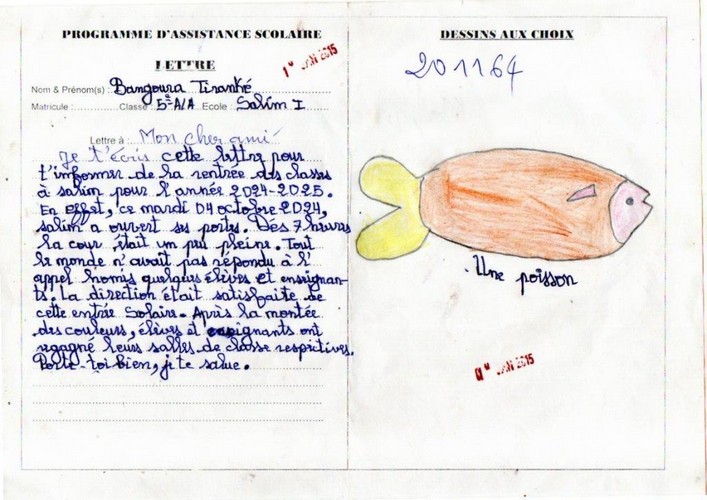 PROGRAMME D'ASSISTANCE SCOLAIRE
LETTRE
1 JAN 2015
Nom & Prénom(s) : Bangoura Tiranké
Matricule : Classe 5è A/A Ecole : Salim I
Lettre à : Mon cher ami
Je t'écris cette lettre pour
t'informer de la rentrée des classes
à salim pour l'année 2024-2025.
En effet, ce mardi 04 octobre 2024,
salim a ouvert ses portes. Dès 7 heures
la cour était un peu pleine. Tout
le monde n'avait pas répondu à l'
appel hormis quelques élèves et enseignan-
ts. La direction était satisfaite de
cette entrée Solaire. Après la montée
des couleurs, élèves et enseignants ont
regagné leurs salles de classe respectives.
Porte-toi bien, je te salue.
DESSINS AUX CHOIX
201164
Une poisson
JAN 2015